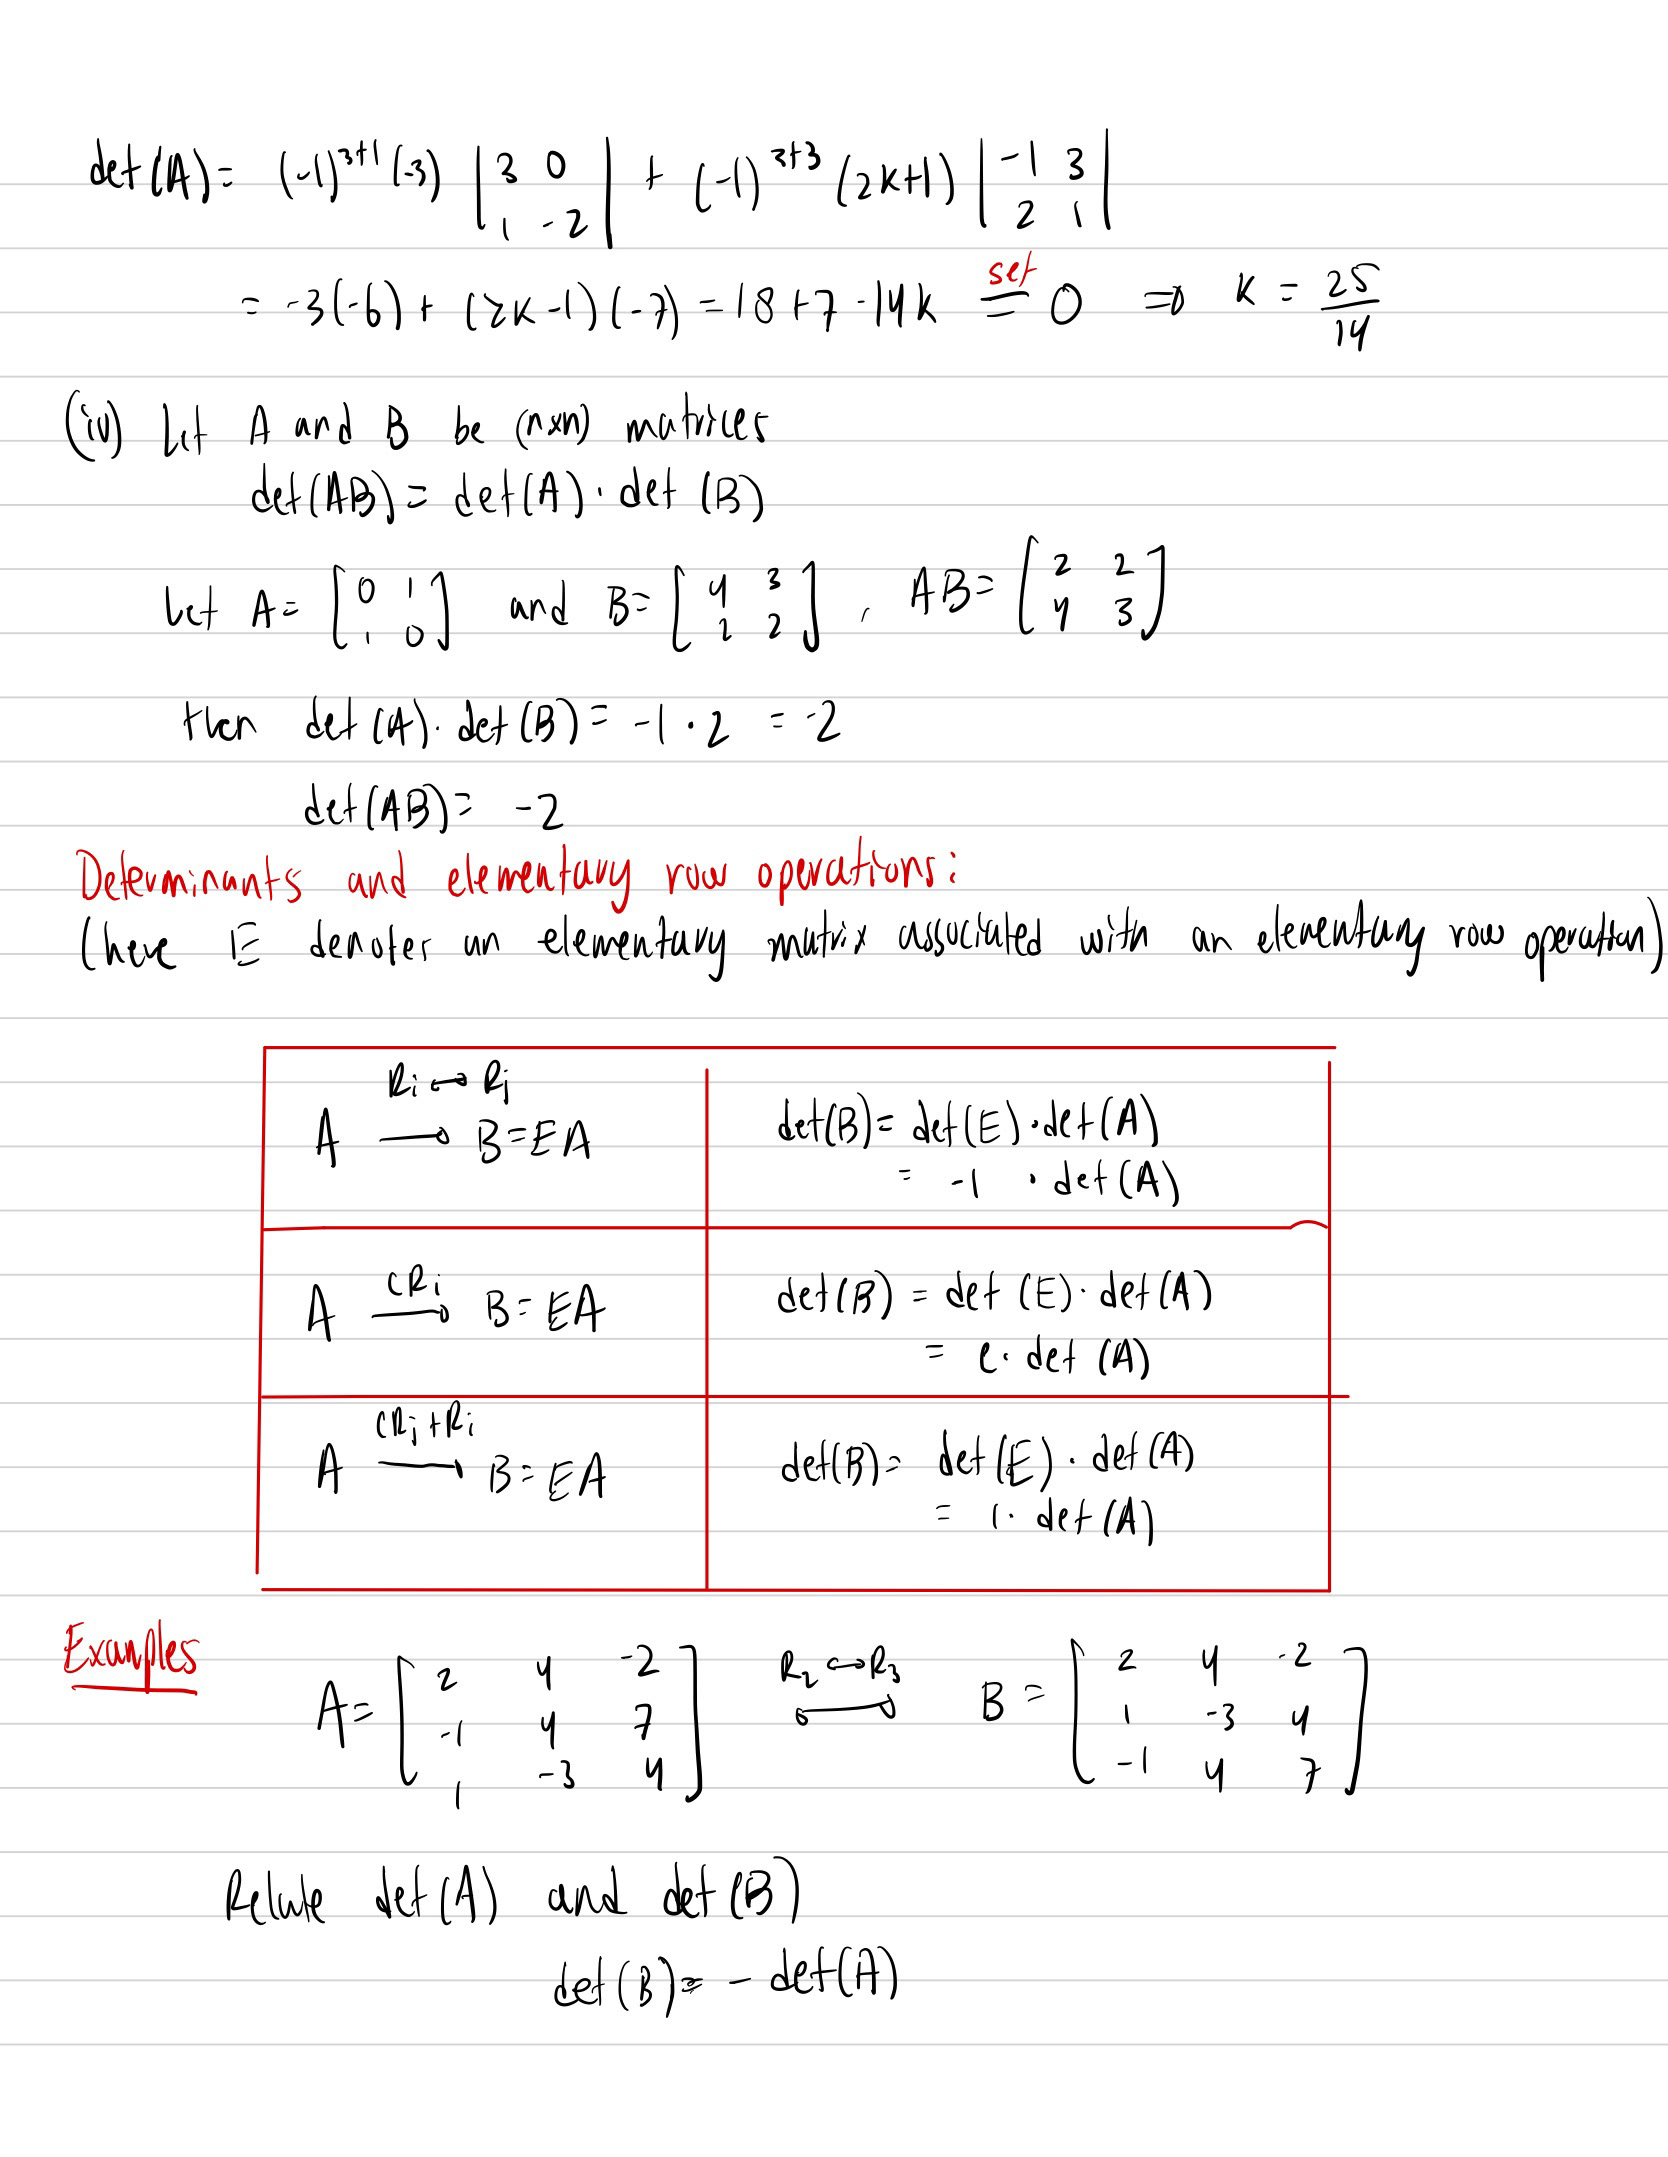 det(A) = (-1)^{3+1} (-3) | 3 0 ; 1 -2 | + (-1)^{3+3} (2k+1) | -1 3 ; 2 1 |
= -3(-6) + (2k-1)(-7) = 18 + 7 - 14k set = 0 ⇒ k = 25/14
(iv) Let A and B be (n×n) matrices
det(AB) = det(A) · det(B)
Let A = [ 0 1 ; 1 0 ] and B = [ 4 3 ; 2 2 ] , AB = [ 2 2 ; 4 3 ]
then det(A) · det(B) = -1 · 2 = -2
det(AB) = -2
Determinants and elementary row operations:
(here E denotes an elementary matrix associated with an elementary row operation)
A → B = EA (Ri ↔ Rj)
det(B) = det(E) · det(A)
= -1 · det(A)
A → B = EA (cRi)
det(B) = det(E) · det(A)
= c · det(A)
A → B = EA (cRj + Ri)
det(B) = det(E) · det(A)
= 1 · det(A)
Examples
A = [ 2 4 -2 ; -1 4 7 ; 1 -3 4 ] R2 ↔ R3 B = [ 2 4 -2 ; 1 -3 4 ; -1 4 7 ]
Relate det(A) and det(B)
det(B) = - det(A)